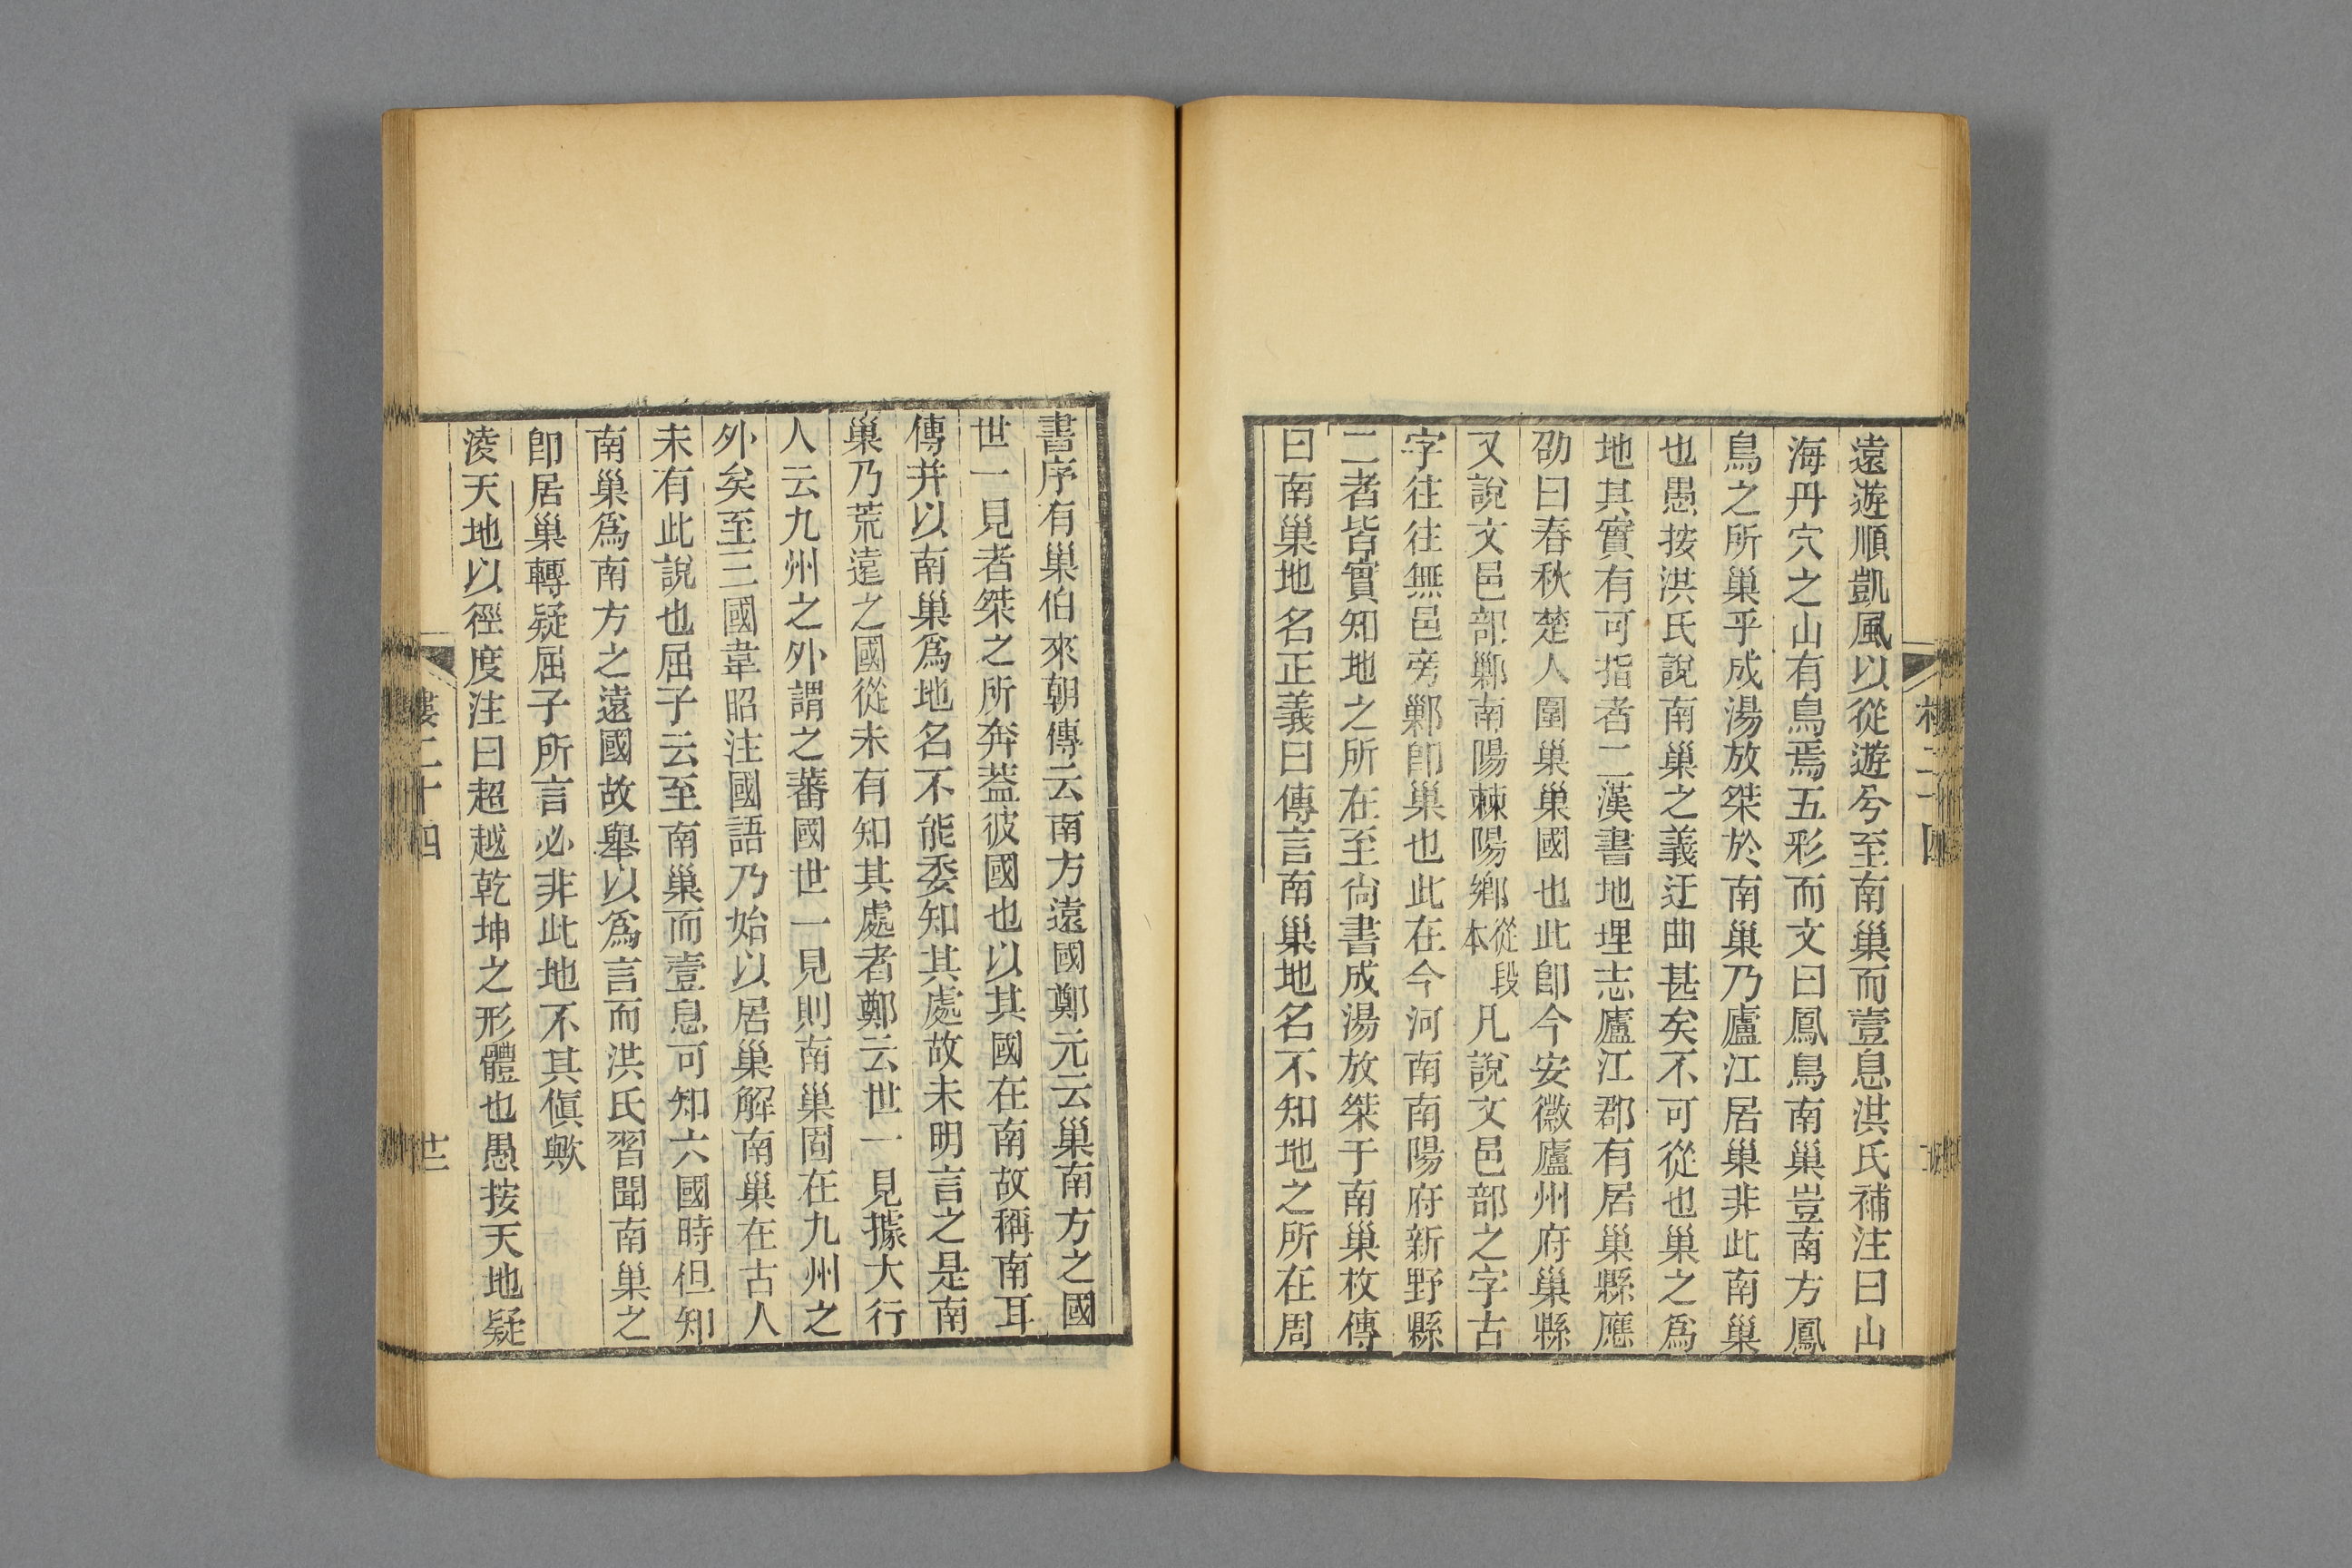 遠遊順凱風以從遊兮至南巢而壹息洪氏補注曰山
海丹穴之山有鳥焉五彩而文曰鳳鳥南巢豈南方鳳
鳥之所巢乎成湯放桀於南巢乃廬江居巢非此南巢
也愚按洪氏說南巢之義迂曲甚矣不可從也巢之爲
地其實有可指者二漢書地理志廬江郡有居巢縣應
劭曰春秋楚人圍巢巢國也此卽今安徽廬州府巢縣
又說文邑部鄛南陽棘陽鄉從段本凡說文邑部之字古
字往往無邑旁鄛卽巢也此在今河南南陽府新野縣
二者皆實知地之所在至尙書成湯放桀于南巢枚傳
曰南巢地名正義曰傳言南巢地名不知地之所在周
書序有巢伯來朝傳云南方遠國鄭元云巢南方之國
世一見者桀之所奔葢彼國也以其國在南故稱南耳
傳并以南巢爲地名不能委知其處故未明言之是南
巢乃荒遠之國從未有知其處者鄭云世一見據大行
人云九州之外謂之蕃國世一見則南巢固在九州之
外矣至三國韋昭注國語乃始以居巢解南巢在古人
未有此說也屈子云至南巢而壹息可知六國時但知
南巢爲南方之遠國故舉以爲言而洪氏習聞南巢之
卽居巢轉疑屈子所言必非此地不其傎歟
淩天地以徑度注曰超越乾坤之形體也愚按天地疑
樓二十四